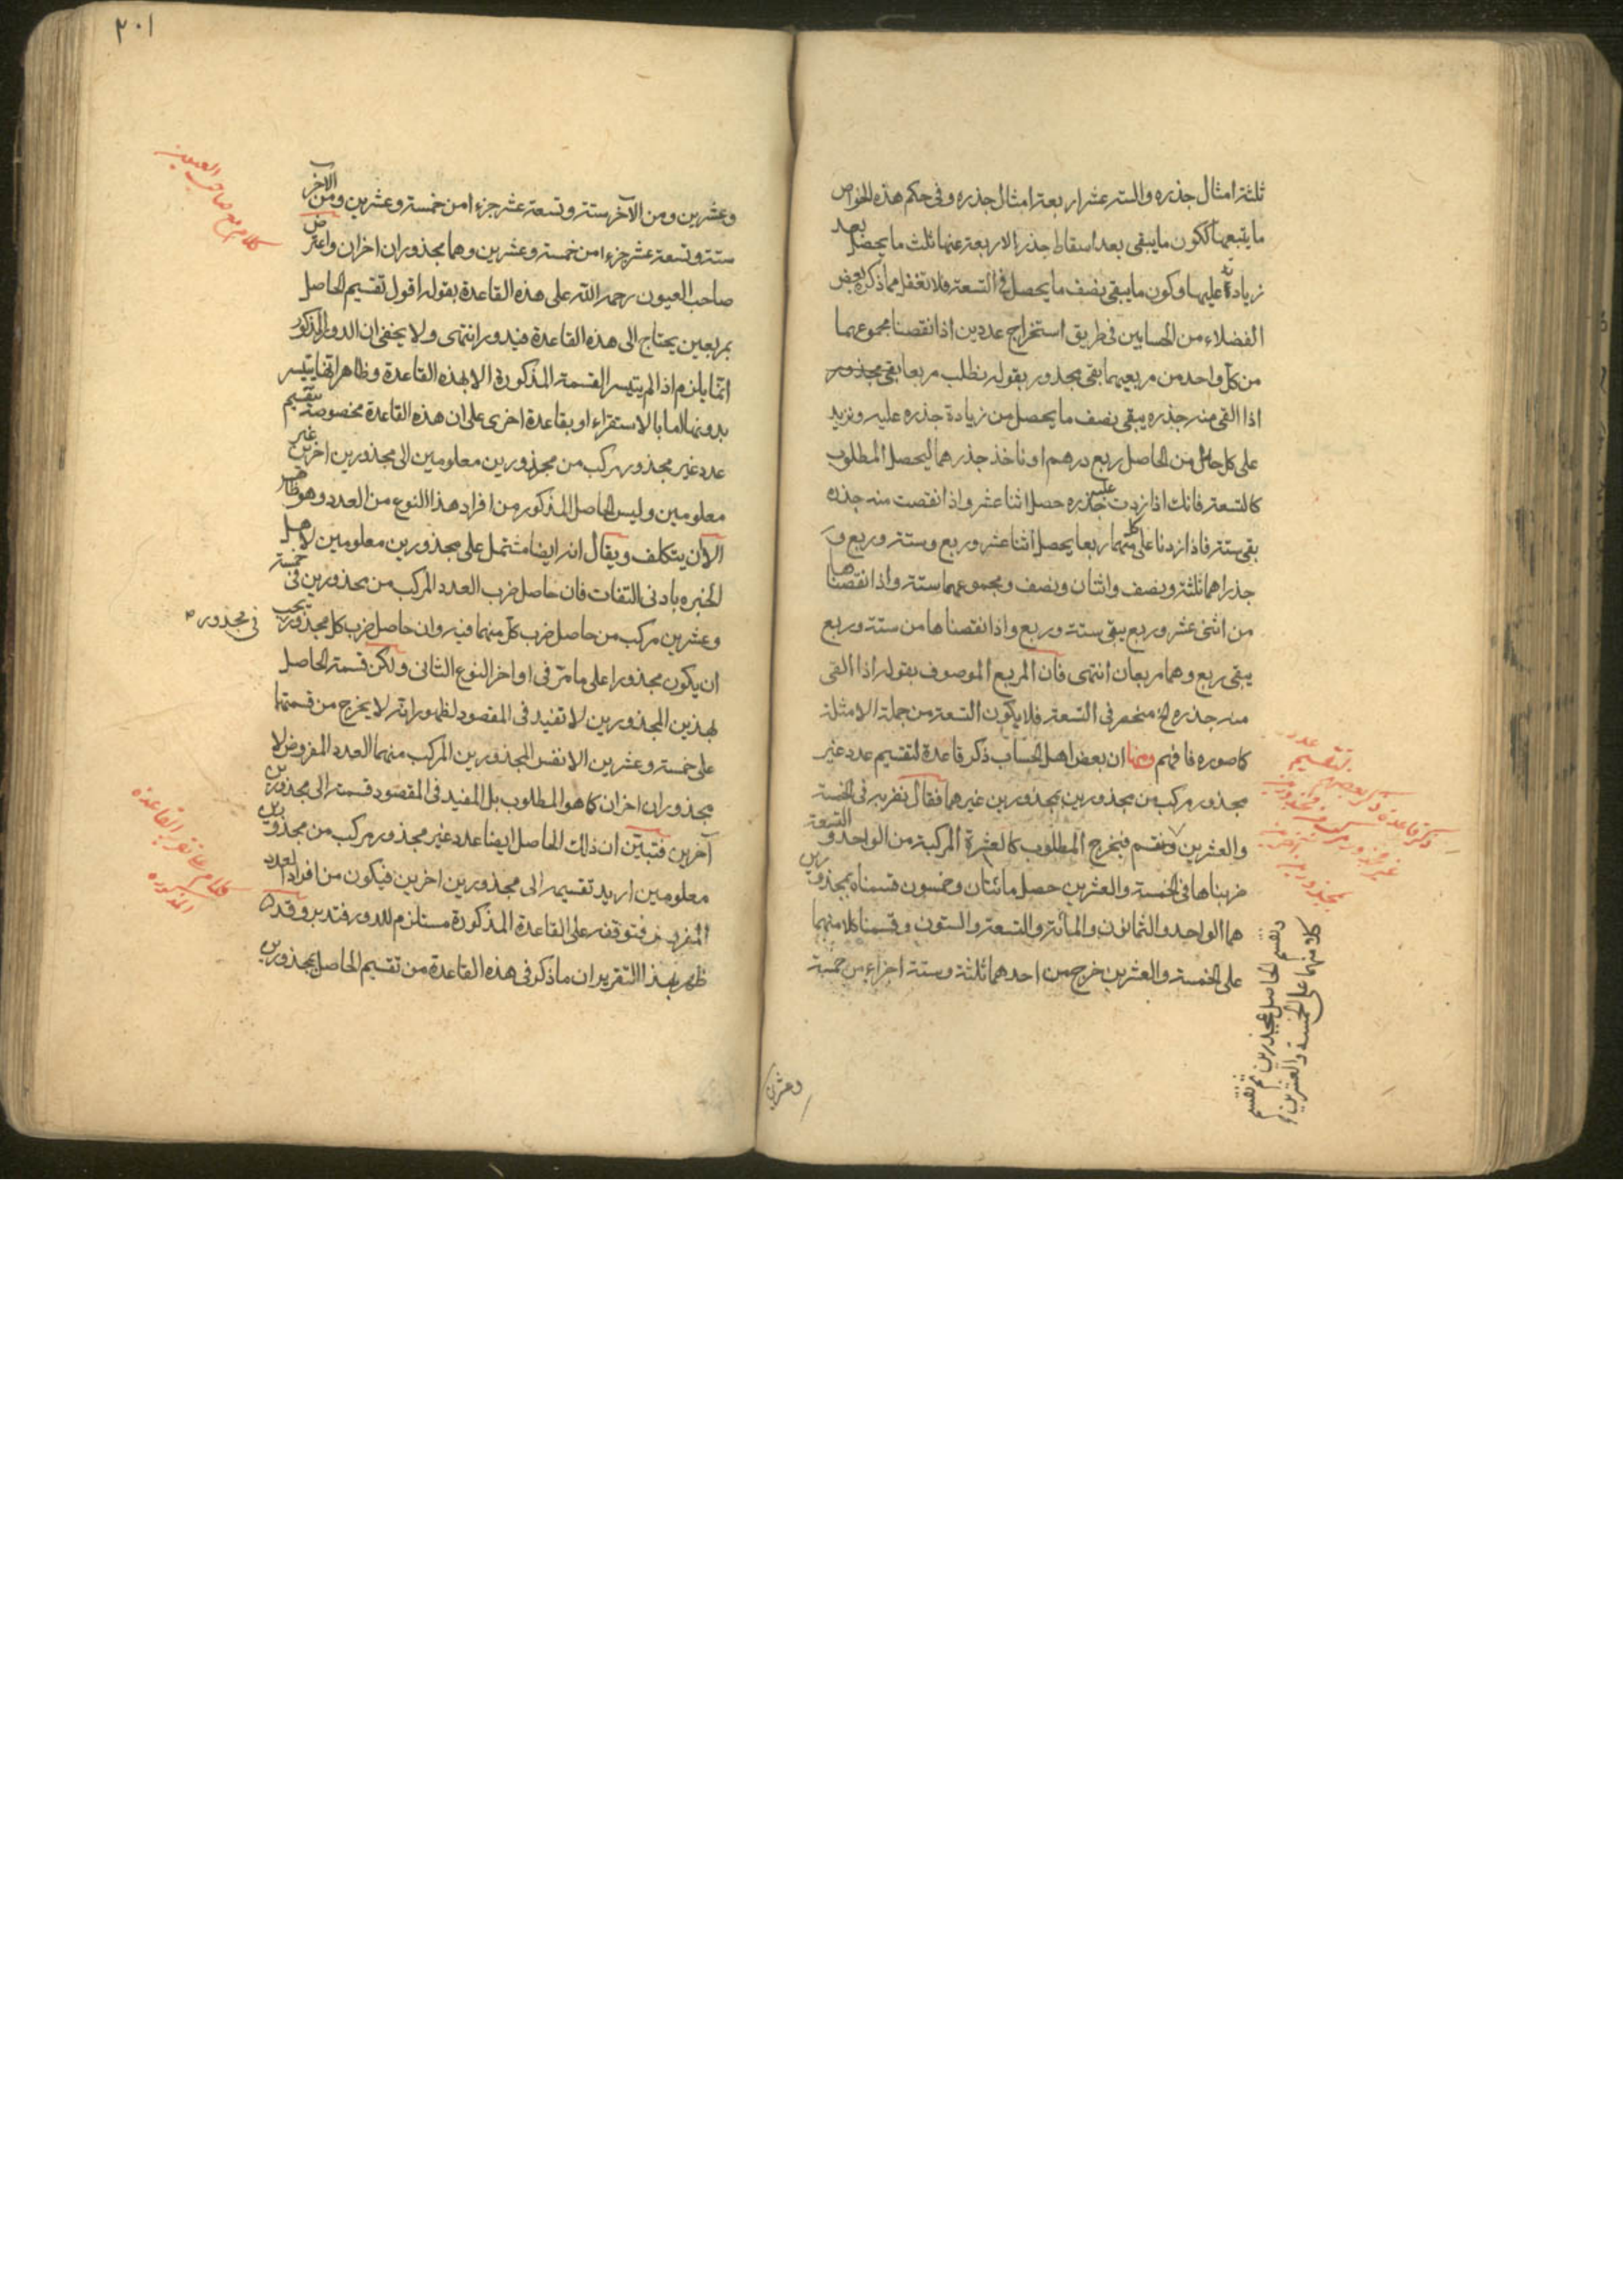 ثلثة امثال جذره والستة عشر اربعة امثال جذره وفى حكم هذه الخواص
ما يتبعها ككون ما يبقى بعد اسقاط جذر الاربعة عنها ثلث ما يحصل بعد
زيادته عليها وكون ما يبقى نصف ما يحصل فى التسعة فلا تغفل مما ذكره بعض
الفضلاء من الحسابين فى طريق استخراج عددين اذا نقصنا مجموعهما
من كل واحد من مربعيهما بقى مجذور بقوله نطلب مربعا بقى مجذور
اذا القى منه جذره يبقى نصف ما يحصل من زيادة جذره عليه ونزيد
على كل من الحاصل ربع درهم او ناخذ جذرهما ليحصل المطلوب
كالتسعة فانك اذا زدت عليه جذره حصل اثنا عشر واذا نقصت منه جذره
بقى ستة فاذا زدنا على كل منهما ربعا يحصل اثنا عشر وربع وستة وربع و
جذراهما ثلثة ونصف واثنان ونصف ومجموعهما ستة واذا نقصناها
من اثنى عشر وربع يبقى ستة وربع واذا نقصناها من ستة وربع
يبقى ربع وهما مربعان انتهى فان المربع الموصوف بقوله اذا القى
منه جذره الخ منحصر فى التسعة فلا يكون التسعة من جملة الامثلة
كما صوره فافهم ومنها ان بعض اهل الحساب ذكر قاعدة لتقسيم عدد غير
مجذور مركب من مجذورين بمجذورين غيرهما فقال نضربه فى الخمسة
والعشرين ونقسم فيخرج المطلوب كالعشرة المركبة من الواحد والتسعة
ضربناها فى الخمسة والعشرين حصل مائتان وخمسون قسمناه بمجذورين
هما الواحد والثمانون والمائة والتسعة والستون وقسمنا كلا منهما
على الخمسة والعشرين خرج من احدهما ثلثة وستة اجزاء من خمسة
ونقسم الحاصل بمجذورين ثم نقسم
كلا منهما على الخمسة والعشرين
وعشرين
٢٠١
وعشرين ومن الآخر ستة وتسعة عشر جزءا من خمسة وعشرين ومن الآخر
ستة وتسعة عشر جزءا من خمسة وعشرين وهما مجذوران اخران واعترض
صاحب العيون رحمه الله على هذه القاعدة بقوله اقول تقسيم الحاصل
بمربعين يحتاج الى هذه القاعدة فيدور انتهى ولا يخفى ان الدور المذكور
انما يلزم اذا لم يتيسر القسمة المذكورة الا بهذه القاعدة وظاهر انها يتيسر
بدونها اما بالاستقراء او بقاعدة اخرى على ان هذه القاعدة مخصوصة بتقسيم
عدد غير مجذور مركب من مجذورين معلومين الى مجذورين اخرين غير
معلومين وليس الحاصل المذكور من افراد هذا النوع من العدد وهو ظاهر
الا ان يتكلف ويقال انه ايضا مشتمل على مجذورين معلومين لاهل
الخبره بادنى التفات فان حاصل ضرب العدد المركب من مجذورين فى خمسة
وعشرين مركب من حاصل ضرب كل منهما فيه وان حاصل ضرب كل مجذور يجب
فى مجذور
ان يكون مجذورا على ما مر فى اواخر النوع الثانى ولكن قسمة الحاصل
بهذين المجذورين لا تفيد فى المقصود لظهور انه لا يخرج من قسمتهما
على خمسة وعشرين الا نفس المجذورين المركب منهما العدد المفروض لا
مجذوران اخران كما هو المطلوب بل المفيد فى المقصود قسمته الى مجذورين
آخرين فتبين ان ذلك الحاصل ايضا عدد غير مجذور مركب من مجذورين
معلومين اريد تقسيمه الى مجذورين اخرين فيكون من افراد العدد
المفروض فتوقفه على القاعدة المذكورة مستلزم للدور فتدبر وقد
ظهر بهذا التقرير ان ما ذكر فى هذه القاعدة من تقسيم الحاصل بمجذورين
كلام مع صاحب العيون